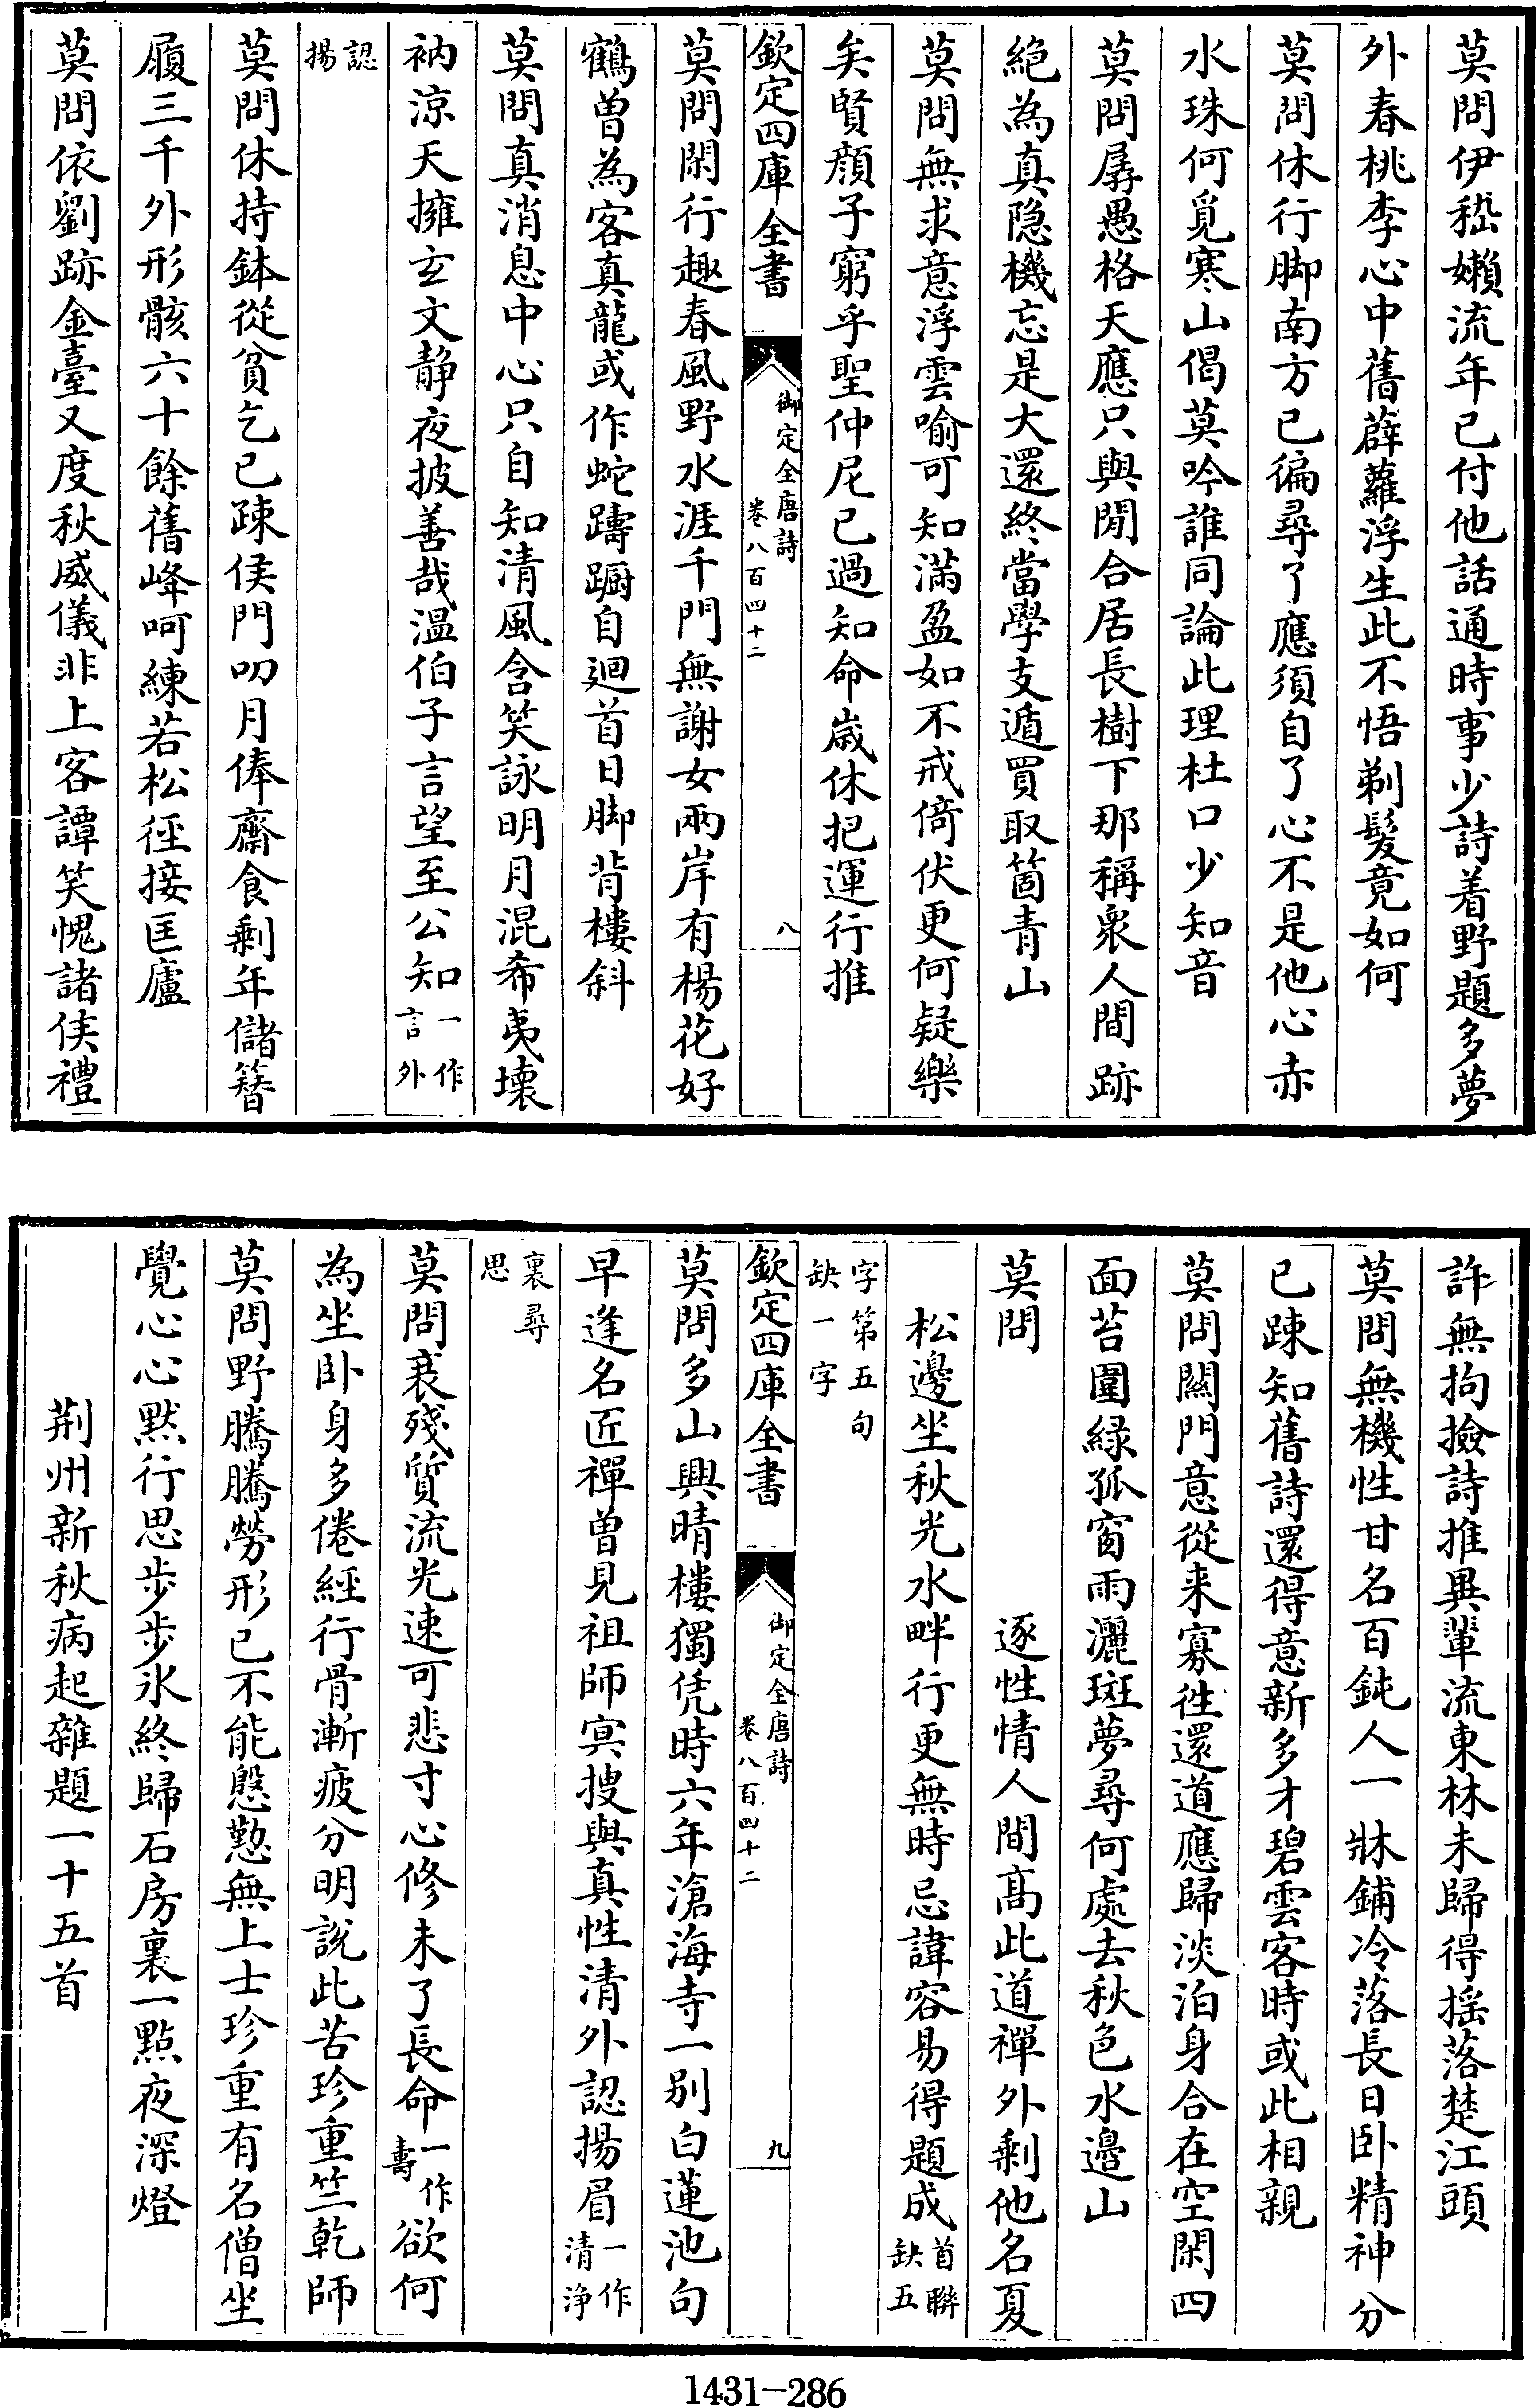 莫問伊嵇嬾流年已付他話通時事少詩着野題多夢
外春桃李心中舊薜蘿浮生此不悟剃髮竟如何
莫問休行脚南方已徧尋了應須自了心不是他心赤
水珠何覓寒山偈莫吟誰同論此理杜口少知音
莫問孱愚格天應只與閒合居長樹下那稱衆人間跡
絶為真隐機忘是大還終當學支遁買取箇青山
莫問無求意浮雲喻可知滿盈如不戒倚伏更何疑樂
矣賢顔子窮乎聖仲尼已過知命歳休把運行推
欽定四庫全書 御定全唐詩 卷八百四十二 八
莫問閑行趣春風野水涯千門無謝女兩岸有楊花好
鶴曽為客真龍或作蛇躊蹰自廻首日脚背樓斜
莫問真消息中心只自知清風含笑詠明月混希夷壞
衲涼天擁玄文静夜披善哉温伯子言望至公知一作言外
認揚
莫問休持鉢從貧乞已疎侯門叨月俸齋食剩年儲簪
履三千外形骸六十餘舊峰呵練若松徑接匡廬
莫問依劉跡金臺又度秋威儀非上客譚笑愧諸侯禮
許無拘撿詩推異輩流東林未歸得揺落楚江頭
莫問無機性甘名百鈍人一牀鋪冷落長日卧精神分
已疎知舊詩還得意新多才碧雲客時或此相親
莫問闗門意從来寡徃還道應歸淡泊身合在空閑四
面苔圍緑孤窗雨灑斑夢尋何處去秋色水邊山
莫問 逐性情人間髙此道禪外剩他名夏
松邊坐秋光水畔行更無時忌諱容易得題成首聯缺五
字第五句缺一字
欽定四庫全書 御定全唐詩 卷八百四十二 九
莫問多山興晴樓獨凭時六年滄海寺一别白蓮池句
早逢名匠禪曽見祖師冥搜與真性清外認揚眉一作清浄
裏尋思
莫問衰殘質流光速可悲寸心修未了長命一作夀欲何
為坐卧身多倦經行骨漸疲分明說此苦珍重竺乾師
莫問野騰騰勞形已不能慇懃無上士珍重有名僧坐
覺心心黙行思步步氷終歸石房裏一點夜深燈
荆州新秋病起雜題一十五首
1431-286